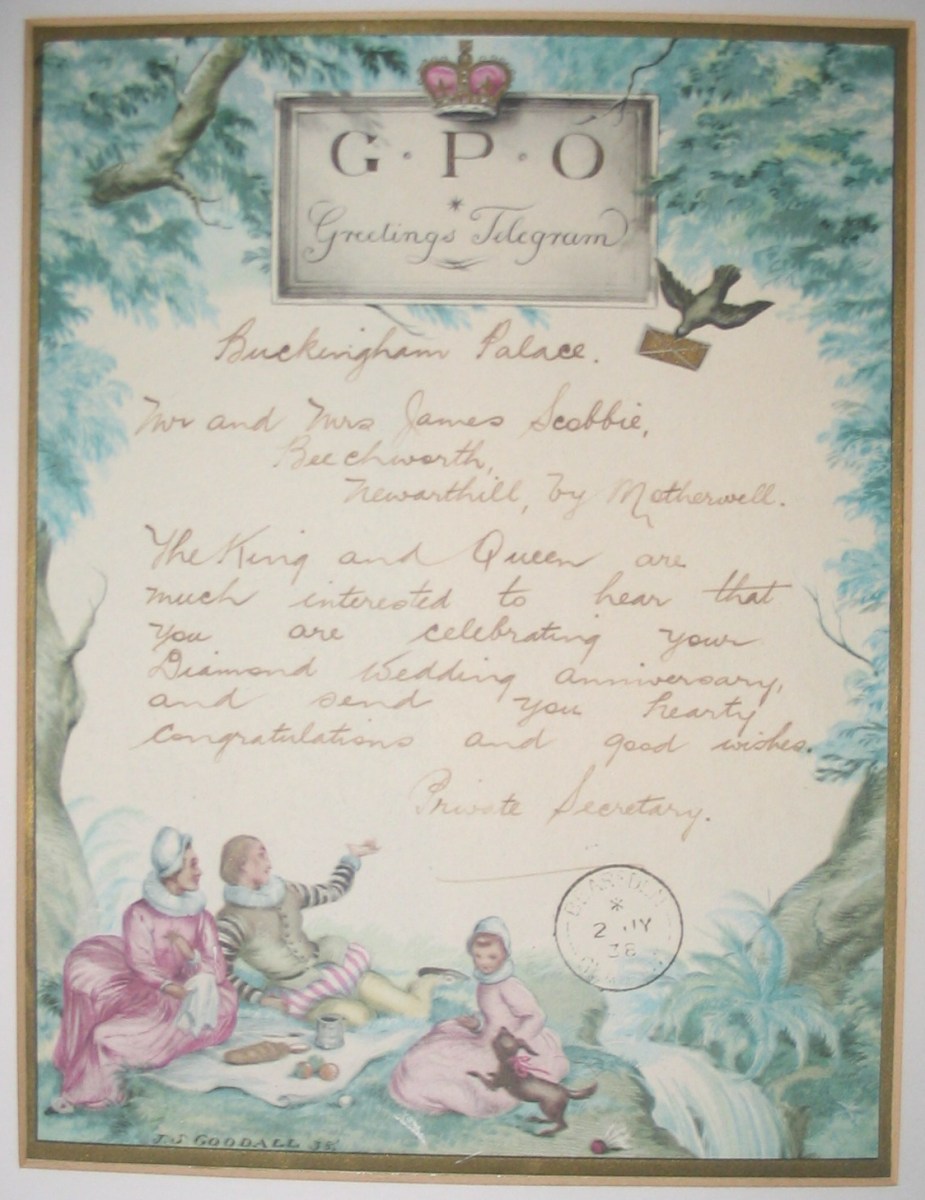 G·P·O
*
Greetings Telegram
Buckingham Palace.
Mr and Mrs James Scobbie,
Beechworth,
Newarthill, by Motherwell.
The King and Queen are
much interested to hear that
you are celebrating your
Diamond Wedding anniversary,
and send you hearty
congratulations and good wishes.
Private Secretary.
*
2 JY
38
J.S GOODALL 38